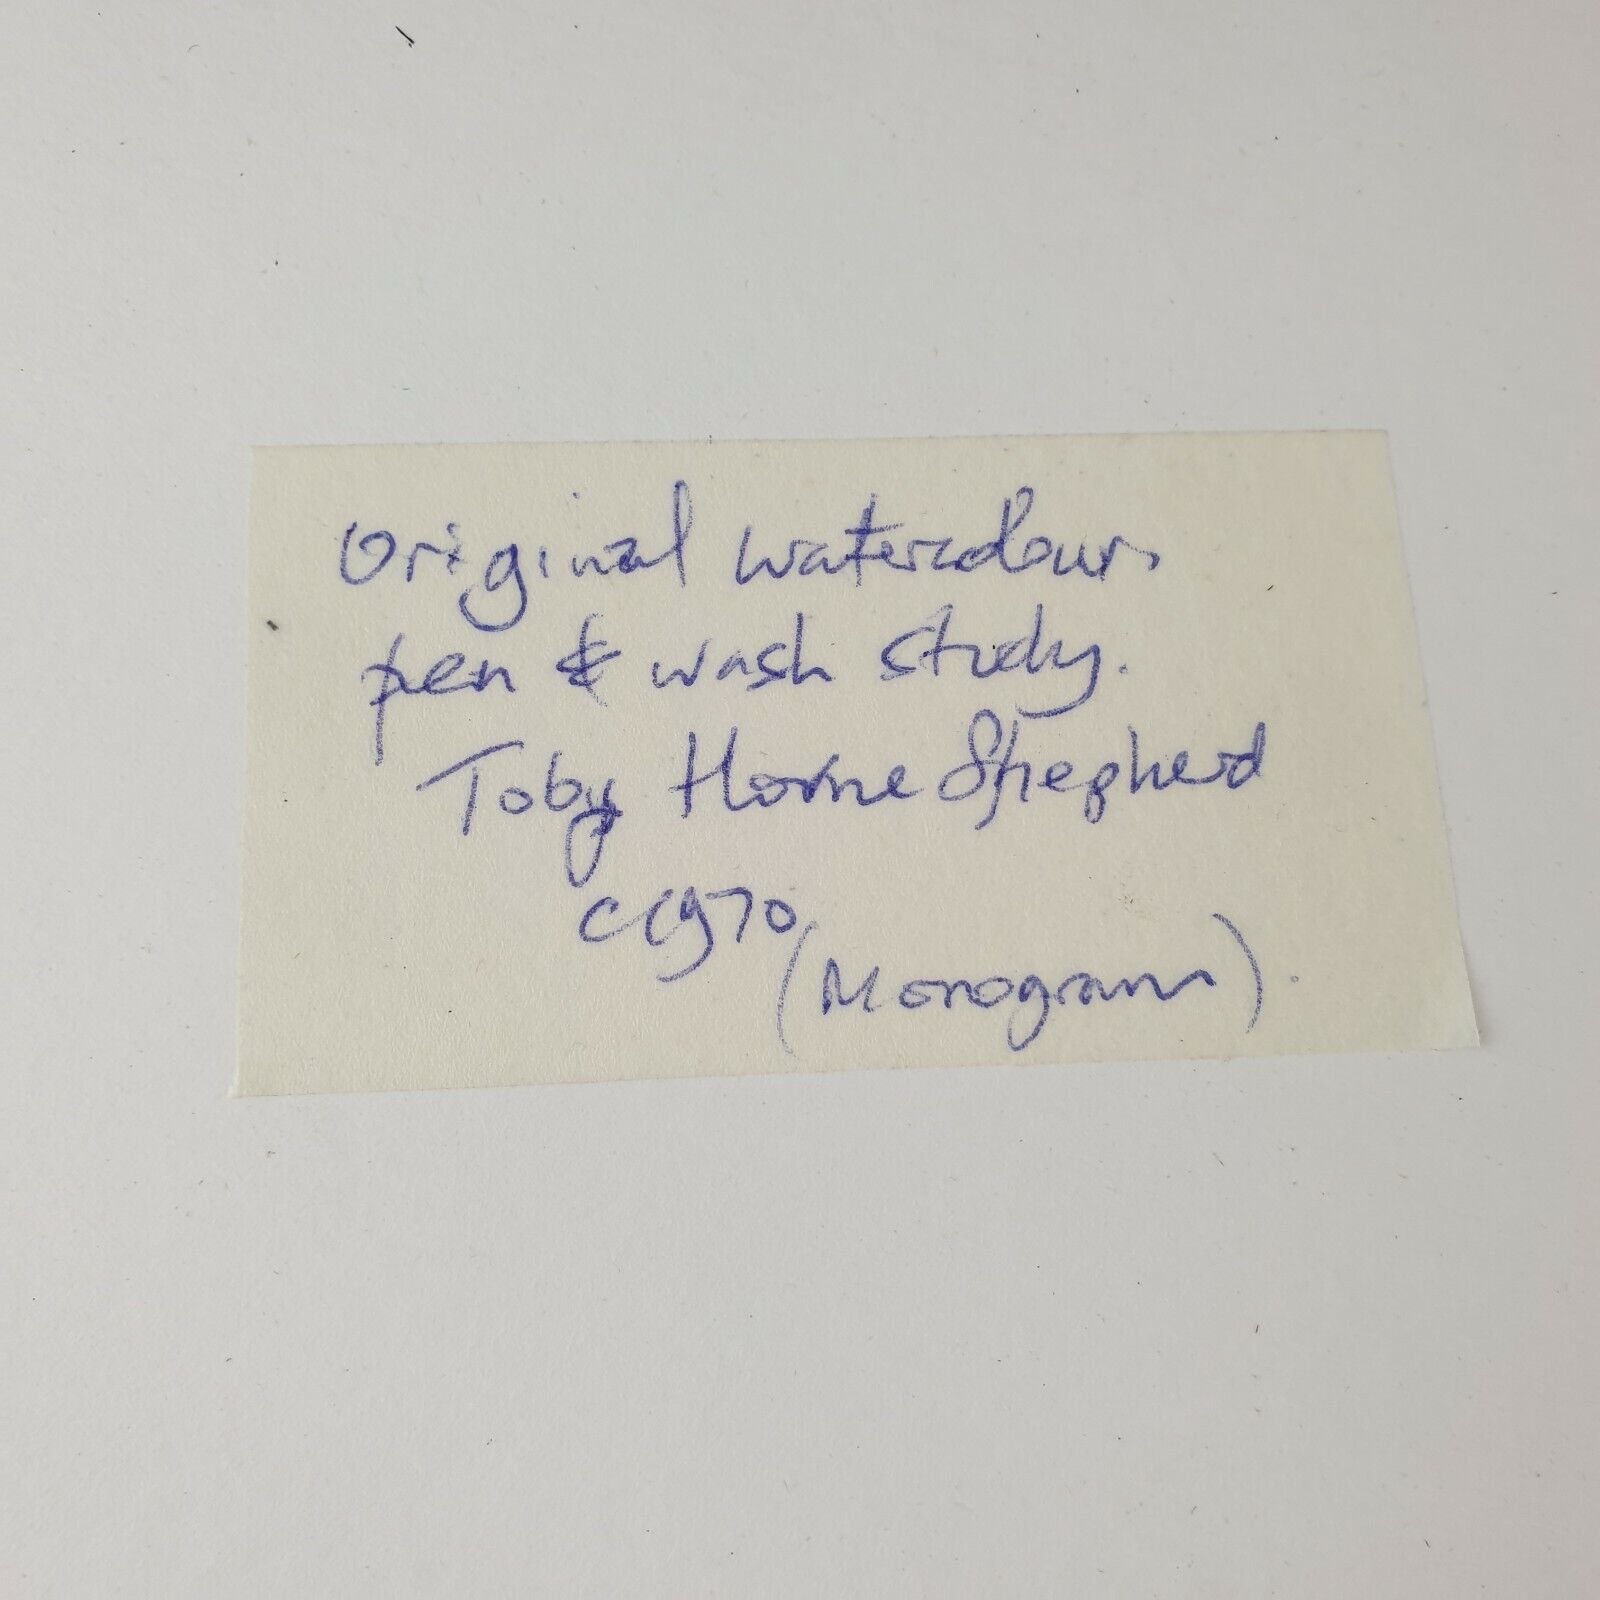 Original watercolour,
pen & wash study.
Toby Horne Shepherd
c1970
(Monogram).